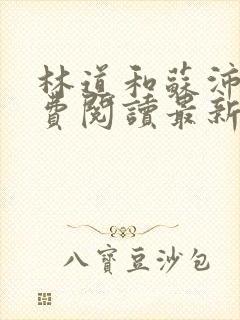 林道和蘇沛
費閱讀最新
八寶豆沙包